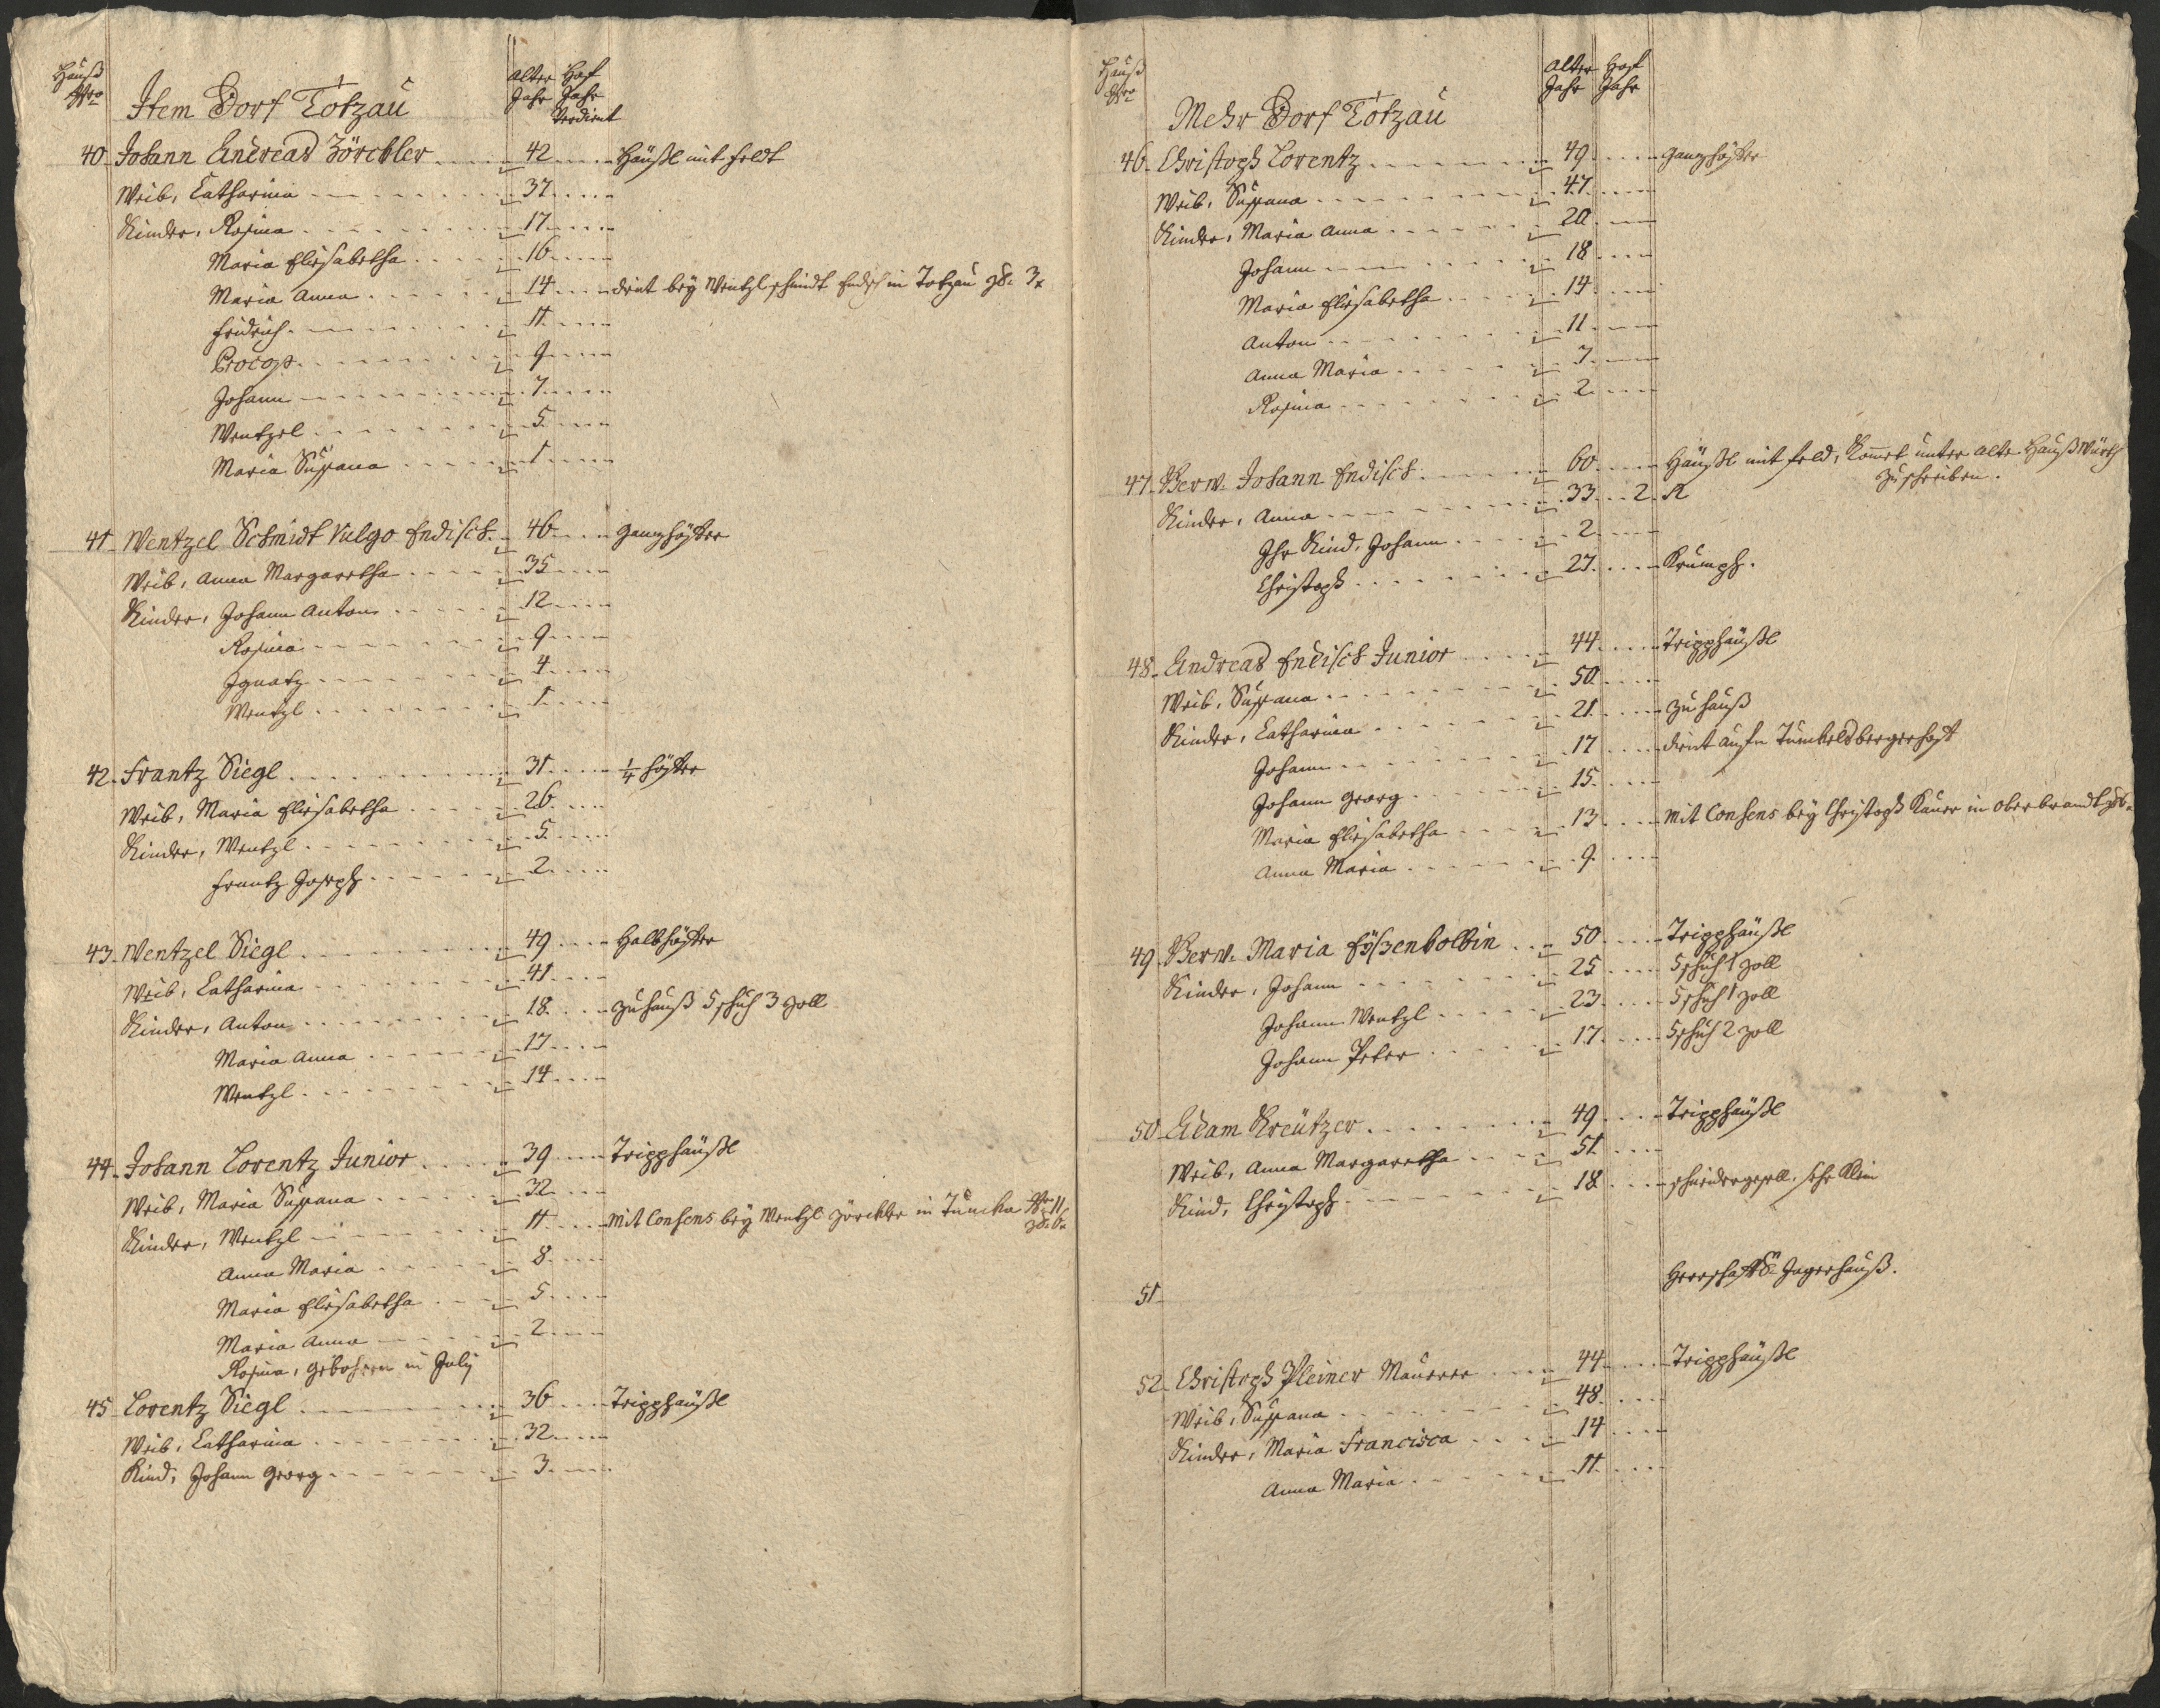 Hauß Nro
Alter Jahr
Hoff Jahr Verdient
Item Dorf Totzau
40. Johann Andreas Zörckler 42 Häußl mit feldt
Weib, Catharina 37
Kinder, Rosina 17
Maria Elisabetha 16
Maria Anna 14 dient bey Wentzl schmidt Endisch in Totzau 3x
Fridrich 11
Procop 9
Johann 7
Wentzel 5
Maria Susana 1
41. Wentzel Schmidt Vulgo Endisch 46 Gantzhöfler
Weib, Anna Margaretha 35
Kinder, Johann Anton 12
Rosina 9
Ignatz 4
Wentzl 1
42. Frantz Siegl 31 1/4 höfler
Weib, Maria Elisabetha 26
Kinder, Wentzl 5
Frantz Joseph 2
43. Wentzel Siegl 49 Halbhöfler
Weib, Catharina 41
Kinder, Anton 18 zu hauß 5 schuh 3 zoll
Maria Anna 17
Wentzl 14
44. Johann Lorentz Junior 39 Tripphäußl
Weib, Maria Susana 32
Kinder, Wentzl 11 Mit Consens bey Wentzl Zörckler in Tuncka Nro 11
Anna Maria 8
Maria Elisabetha 5
Maria Anna 2
Rosina, gebohren in July
45. Lorentz Siegl 36 Tripphäußl
Weib, Catharina 32
Kind, Johann Georg 3
Hauß Nro
Alter Jahr
Hoff Jahr
Mehr Dorf Totzau
46. Christoph Lorentz 49 Gantzhöfler
Weib, Susana 47
Kinder, Maria Anna 20
Johann 18
Maria Elisabetha 14
Anton 11
Anna Maria 7
Rosina 2
47. Verw. Johann Endisch 60 Häußl mit feld, Komet unter alte Hauß Würth
zu schreiben.
Kinder, Anna 33 2
Ihr Kind, Johann 2
Christoph 27 Krumph.
48. Andreas Endisch Junior 44 Tripphäußl
Weib, Susana 50
Kinder, Catharina 21 zu hauß
Johann 17 dient aufn Tumbelsbergerhoft
Johann Georg 15
Maria Elisabetha 13 Mit Consens bey Christoph Kauer in Oberbrandt
Anna Maria 9
49. Verw. Maria Eyßenkolbin 50 Tripphäußl
Kinder, Johann 25 5 schuh 1 zoll
Johann Wentzl 23 5 schuh 1 zoll
Johann Peter 17 5 schuh 2 zoll
50. Adam Kreutzer 49 Tripphäußl
Weib, Anna Margaretha 51
Kind, Christoph 18 schneidergesell, sehr Klein
51. Herrschaftl. Jagerhauß.
52. Christoph Pleiner Maurer 44 Tripphäußl
Weib, Susana 48
Kinder, Maria Francisca 14
Anna Maria 11